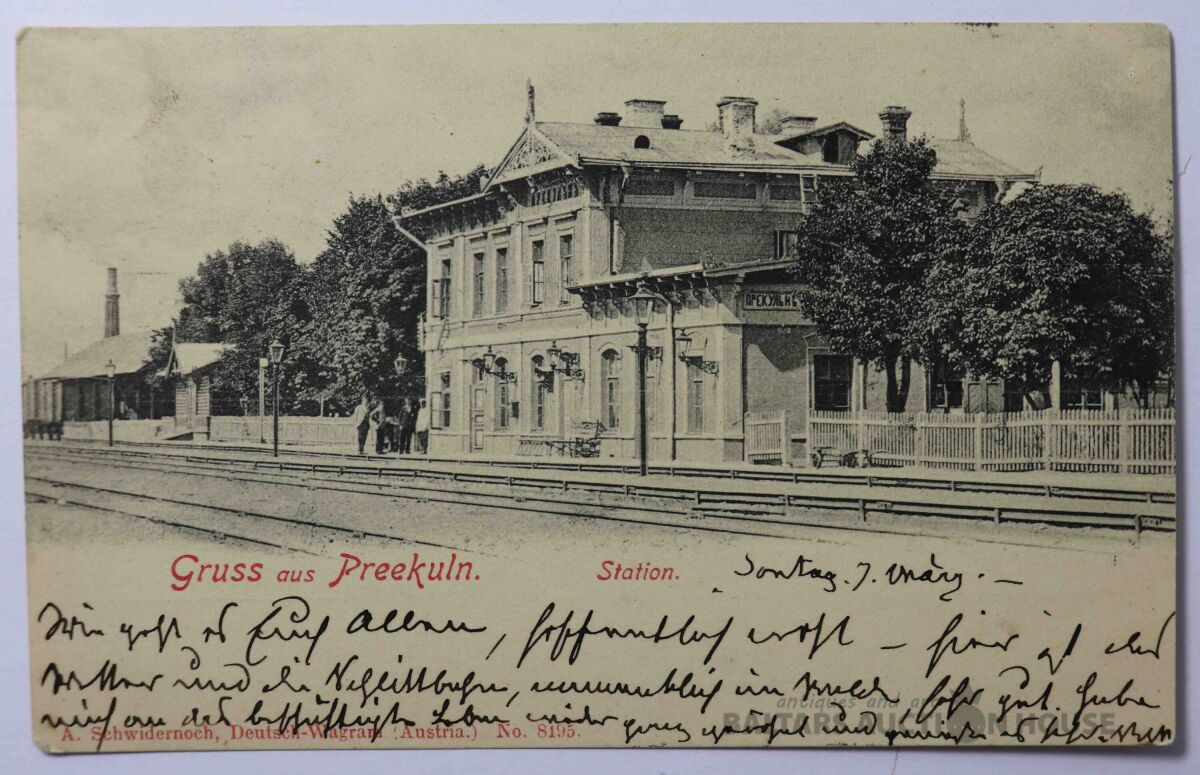 ПРЕКУЛЬНЪ
Gruss aus Preekuln.
Station.
Sontag. 7. März. —
Wie geht es Euch Allen, hoffentlich recht — hier ist das
Wetter und die Schlittbahn, namentlich im Walde sehr gut. Habe
mich an das beschäftigte Leben wieder ganz und es
A. Schwidernoch, Deutsch-Wagram (Austria.) No. 8195.
antiques and art
BALTARS AUCTION HOUSE